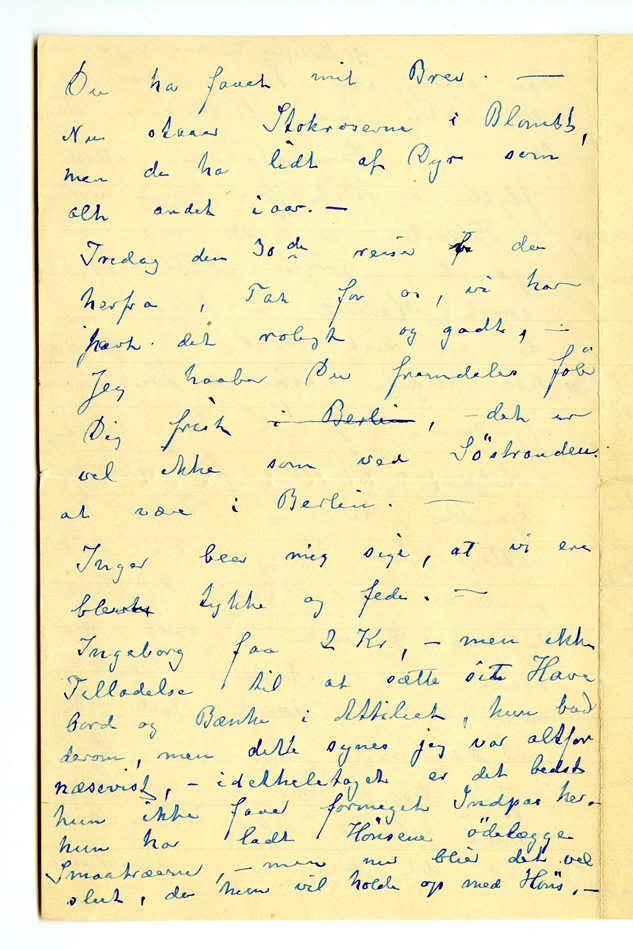 Du ha faaet mit Brev. —
Nu staar Stokroserne i Blomst,
men de ha lidt af Dyr som
alt andet i aar. —
Fredag den 30de reise de
herfra, Tak for os, vi har
havt det roligt og godt, —
Jeg haaber Du fremdeles föle
Dig frisk i Berlin, – det er
vel ikke som ved Söstranden
at være i Berlin. —
Inger beer mig sige, at vi ere
blevne tykke og fede. —
Ingeborg faa 2 Kr, – men ikke
Tilladelse til at sætte sit Have
bord og Bænke i Attiliet, hun bad
derom, men dette synes jeg var altfor
næsevist, – idetheletaget er det bedst
hun ikke faaer formeget Indpas her. –
hun har ladt Hönsene ödelægge
Smaatræerne, – men nu blier det vel
slut, da hun vil holde op med Höns. –